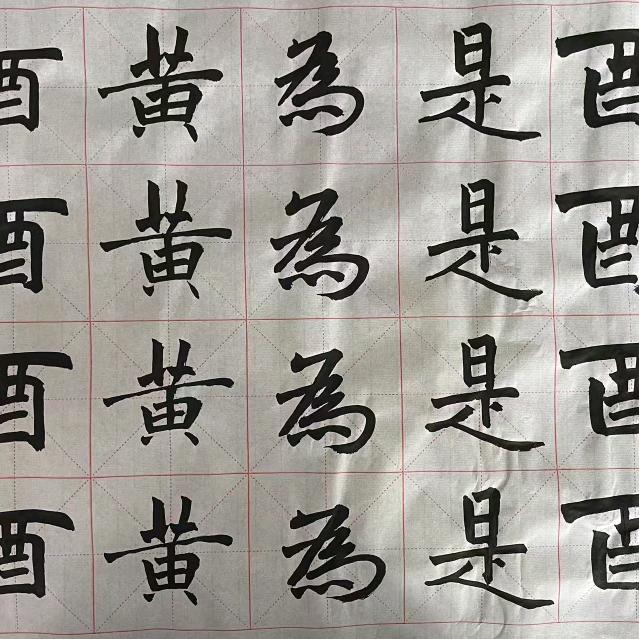 酉黄為是酉
酉黄為是酉
酉黄為是酉
酉黄為是酉